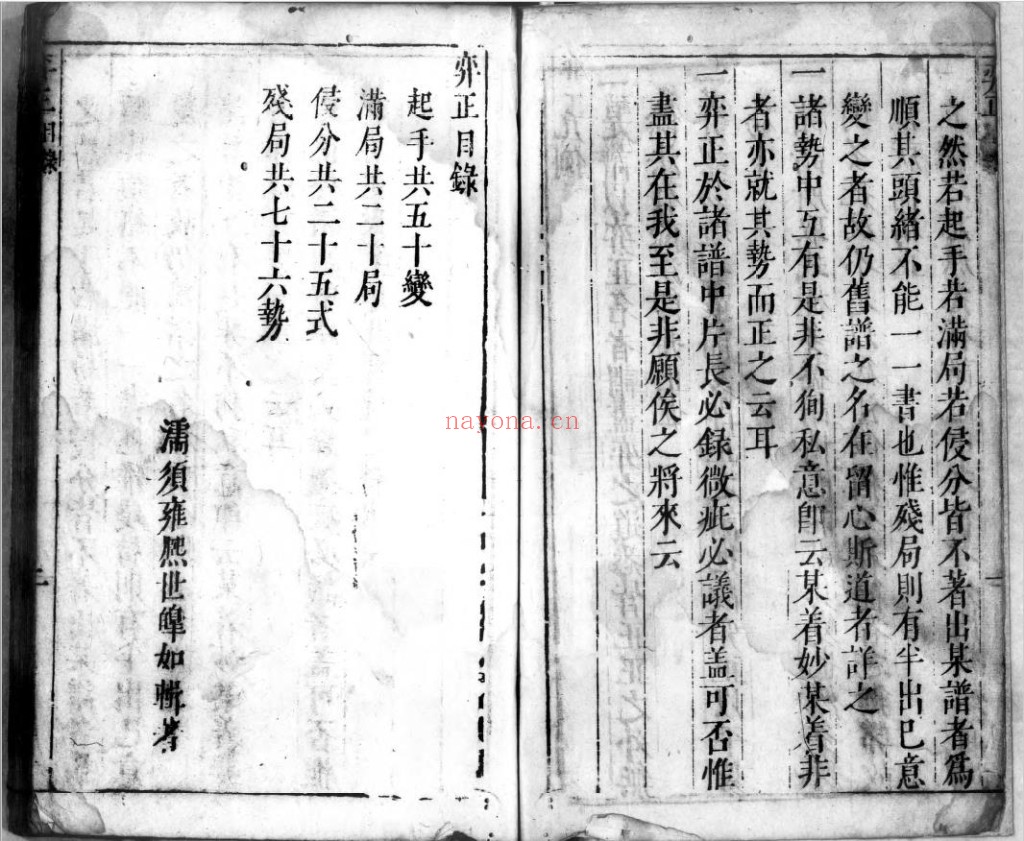 之然若起手若滿局若侵分皆不著出某譜者爲
順其頭緒不能一一書也惟殘局則有半出已意
變之者故仍舊譜之名在留心斯道者詳之
一諸勢中互有是非不狥私意卽云某着妙某着非
者亦就其勢而正之云耳
一弈正於諸譜中片長必録微疵必議者盖可否惟
盡其在我至是非願俟之將來云
弈正目錄
起手共五十變
滿局共二十局
侵分共二十五式
殘局共七十六勢
濡須雍熈世皥如輯著
nayona.cn